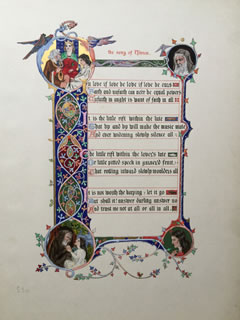 the song of Nimue.
In love if love be love if love be ours
Faith and unfaith can neer be equal powers
Unfaith in aught is want of faith in all
It is the little rift within the lute
That by and by will make the music mute
And ever widening slowly silence all
The little rift within the lover's lute
Or little pitted speck in garner'd fruit
That rotting inward slowly moulders all
It is not worth the keeping : let it go
But shall it? answer darling answer no
And trust me not at all or all in all.